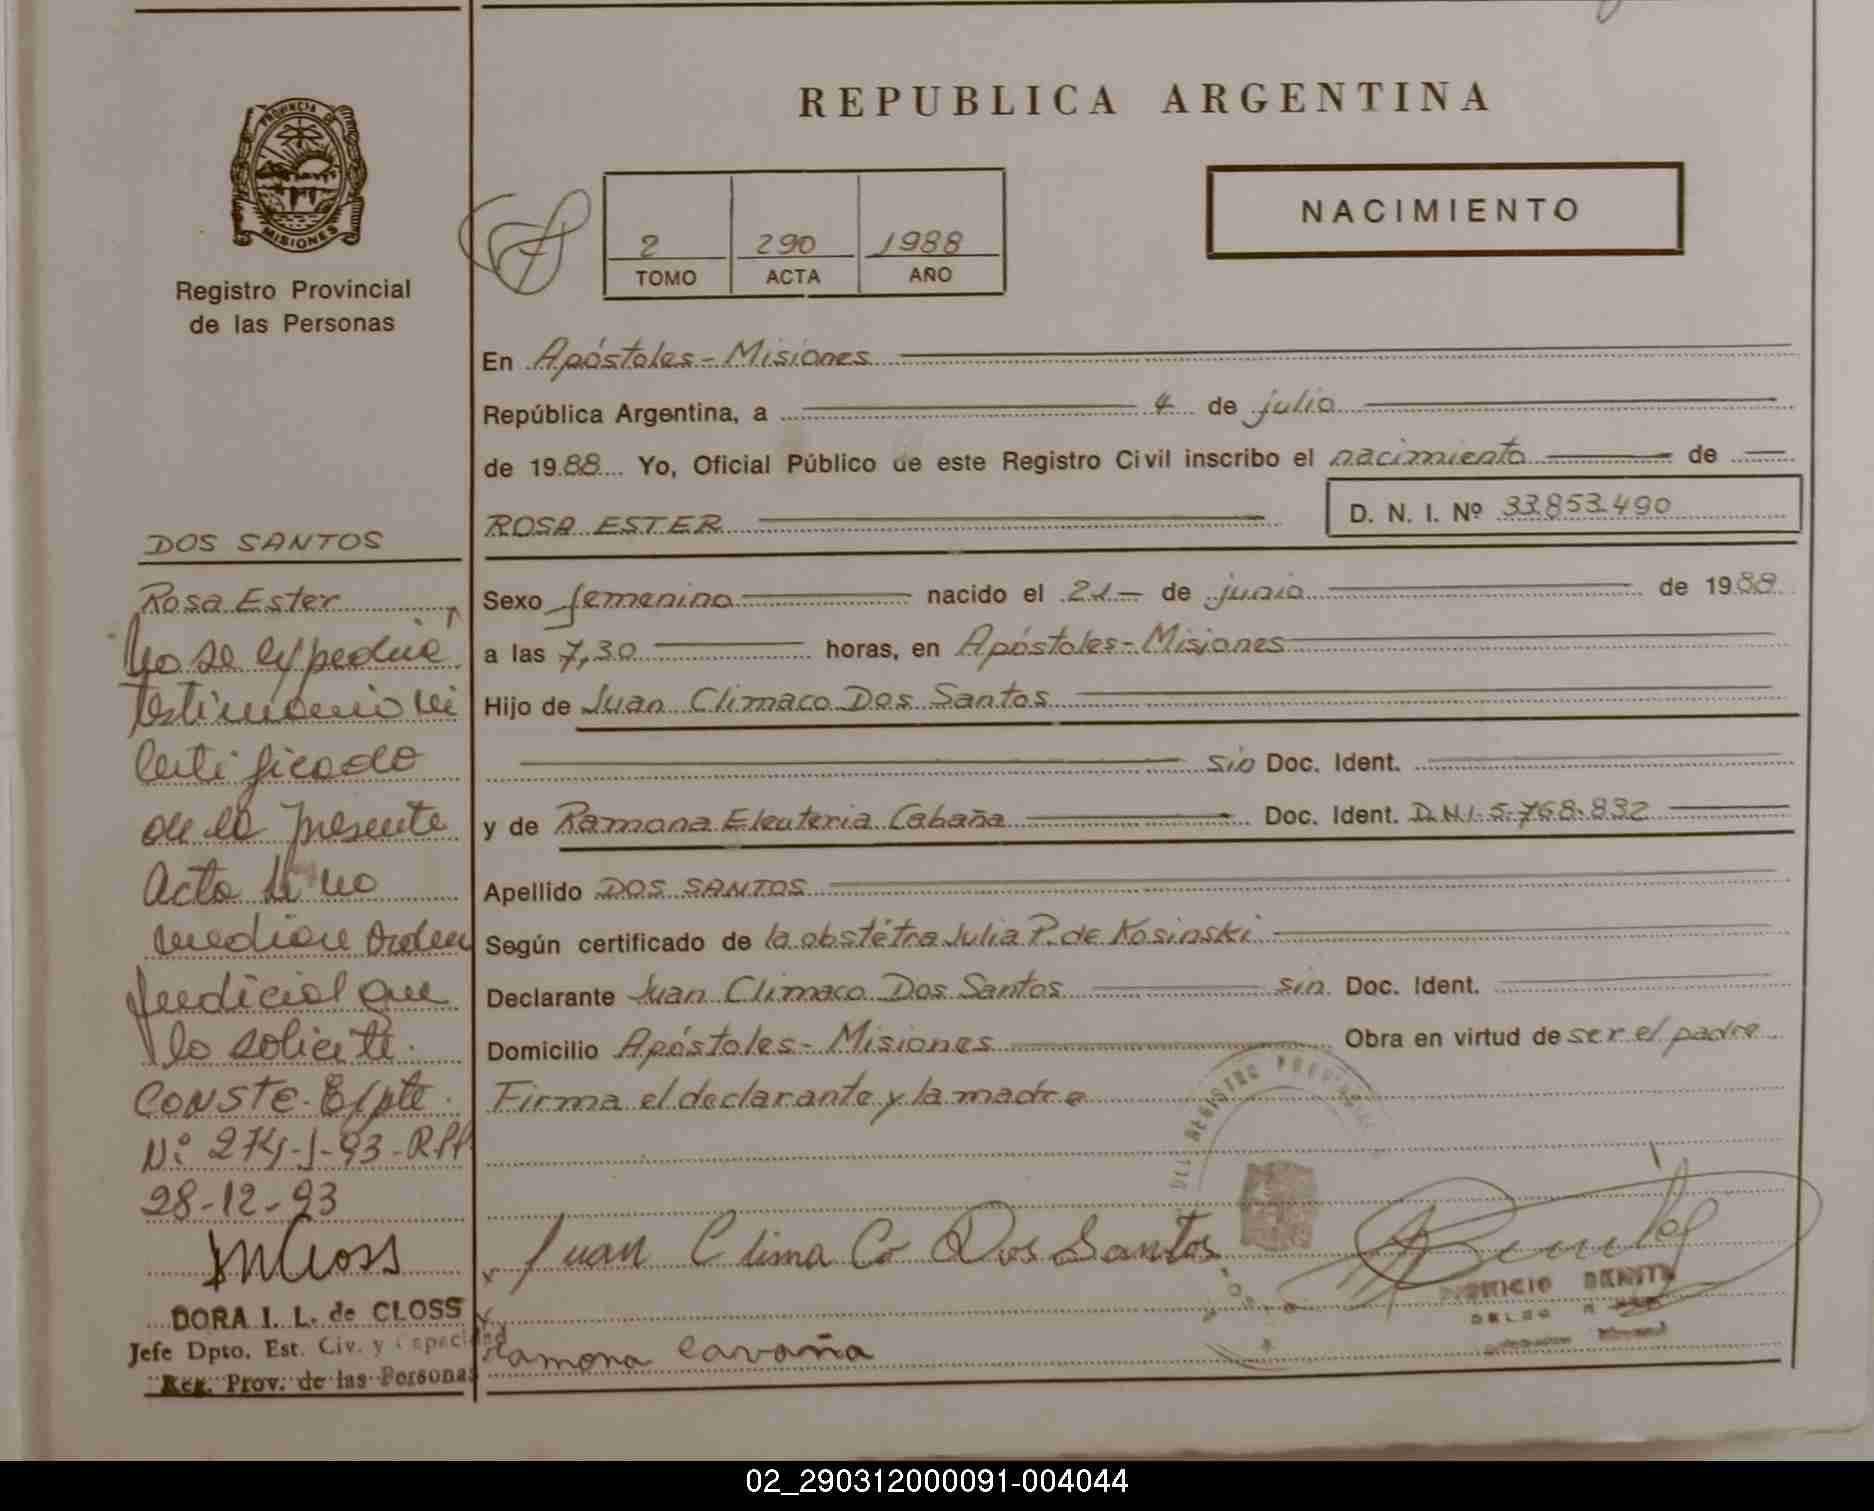 REPUBLICA ARGENTINA
PROVINCIA DE
MISIONES
Registro Provincial
de las Personas
2 290 1988
TOMO ACTA AÑO
NACIMIENTO
En Apóstoles-Misiones
República Argentina, a 4 de julio
de 1988 Yo, Oficial Público de este Registro Civil inscribo el nacimiento de
ROSA ESTER
D. N. I. Nº 33.853.490
Sexo femenino nacido el 21 de junio de 1988
a las 7,30 horas, en Apóstoles-Misiones
Hijo de Juan Climaco Dos Santos
sin Doc. Ident.
y de Ramona Eleuteria Cabaña Doc. Ident. D.N.I. 5.768.832
Apellido DOS SANTOS
Según certificado de la obstétra Julia P. de Kosinski
Declarante Juan Climaco Dos Santos sin Doc. Ident.
Domicilio Apóstoles-Misiones Obra en virtud de ser el padre
Firma el declarante y la madre
DEL REGISTRO PROVINCIAL
Juan Clima Co Dos Santos
Ramona Cavaña
DOS SANTOS
Rosa Ester
No se expedirá
testimonio ni
Certificado
de la presente
Acta si no
mediare Orden
Judicial que
lo solicite.
CONSTE. Expte.
28-12-93
DORA I. L. de CLOSS
Jefe Dpto. Est. Civ. y Capacidad
Reg. Prov. de las Personas
02_290312000091-004044